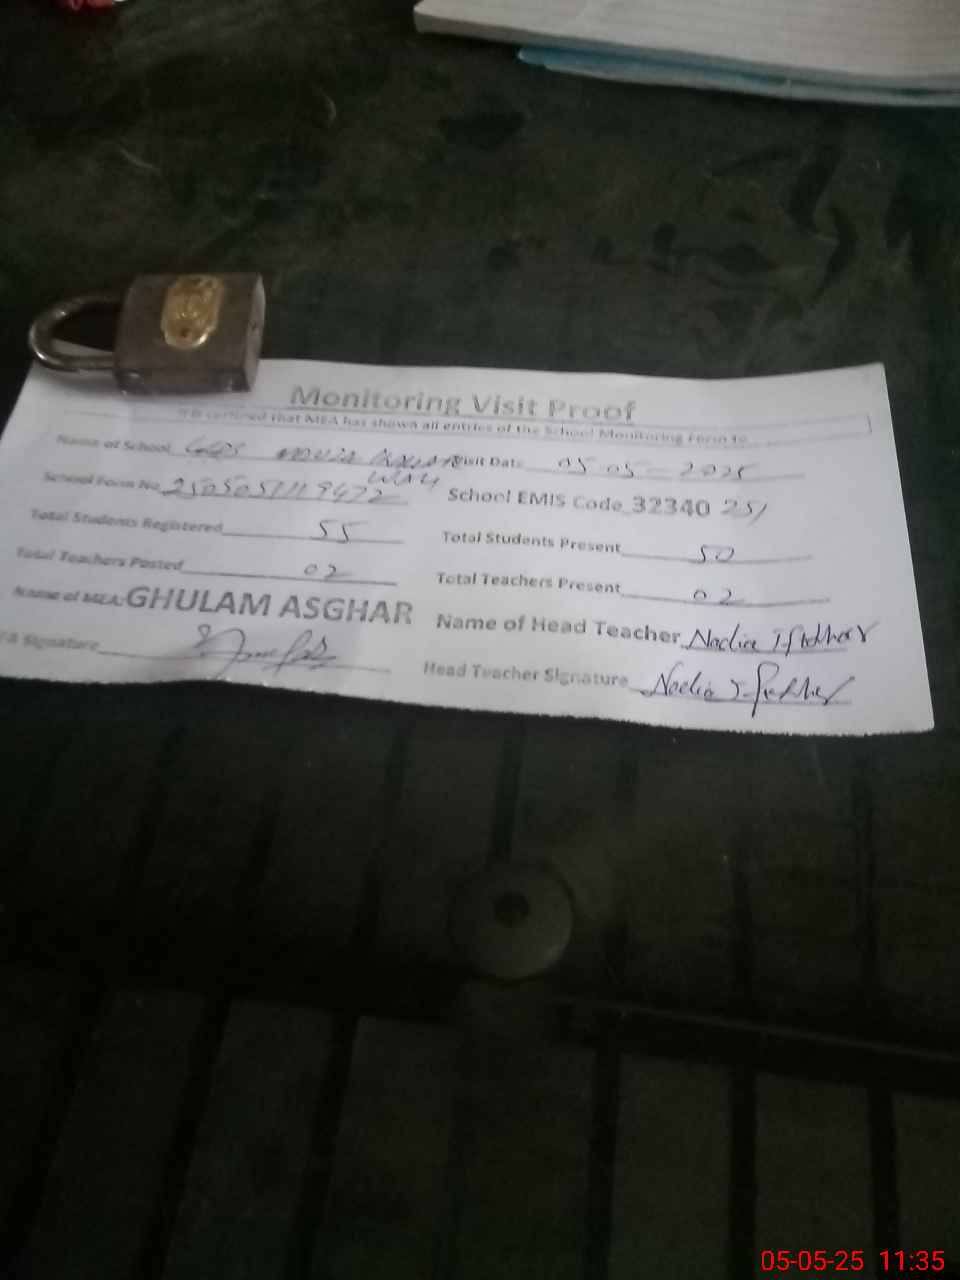 Monitoring Visit Proof
It is certified that MEA has shown all entries of the School Monitoring Form to
Name of School GGPS Visit Date 05-05-2025
School Form No. 2505051119472 School EMIS Code 32340 251
Total Students Registered 55 Total Students Present 50
Total Teachers Posted 02 Total Teachers Present 02
Name of MEA: GHULAM ASGHAR Name of Head Teacher Nadia Iftikhar
Signature Head Teacher Signature Nadia Iftikhar
05-05-25 11:35